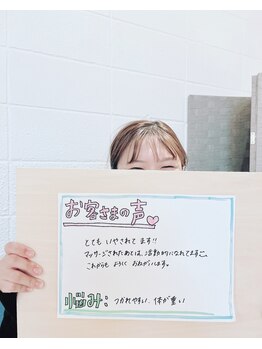 お客さまの声♡
とても いやされて ます!!
マッサージされたあとは、活動的になれてます。
これからも よろしく おねがいします。
悩み: つかれやすい、体が重い